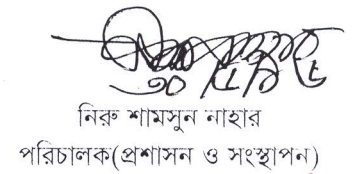 নিরু শামসুন নাহার
পরিচালক(প্রশাসন ও সংস্থাপন)